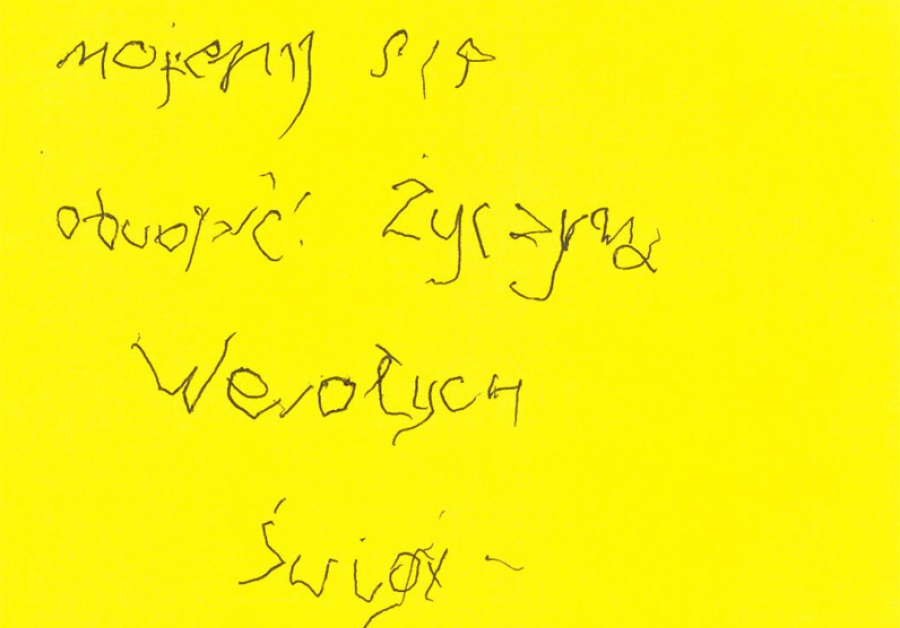 możemy się
obwąchć. Życzymy
Wesołych
Świąt ~